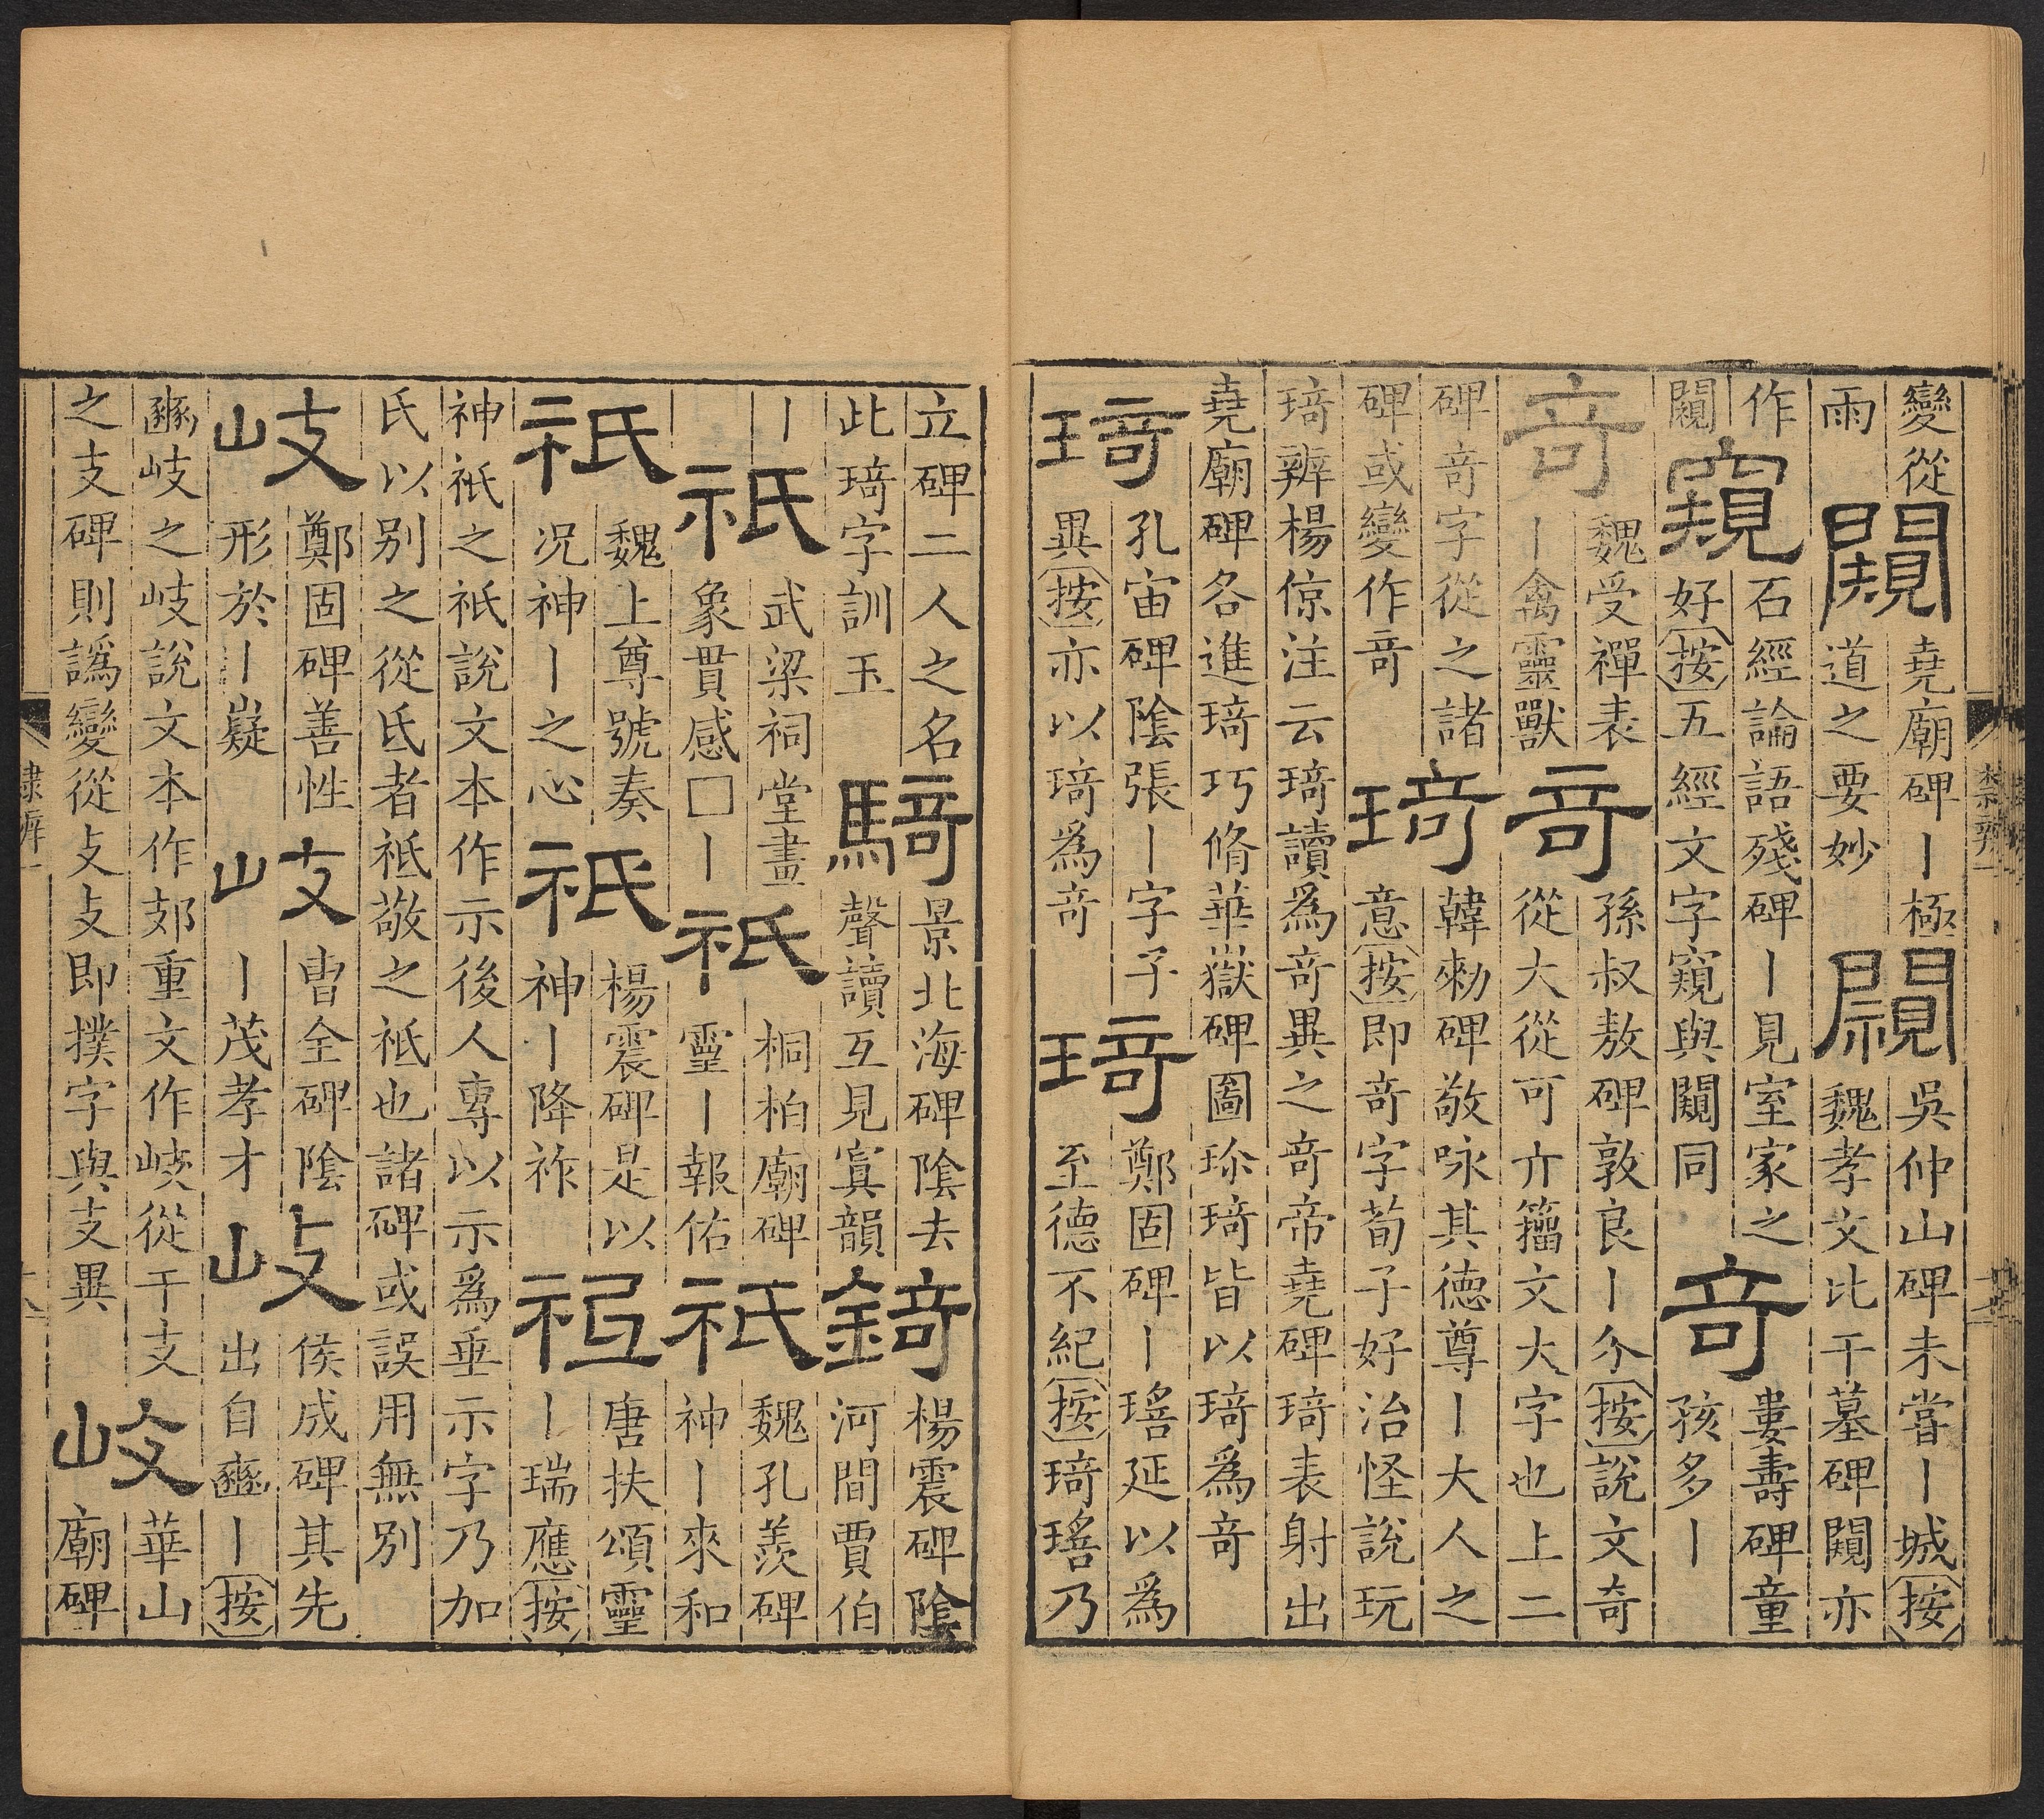 變從
雨
闚
堯廟碑丨極
道之要妙
闚
吳仲山碑未甞丨城按
魏孝文比干墓碑闚亦
作
闚
窺
石經論語殘碑丨見室家之
好按五經文字窺與闚同
竒
婁壽碑童
孩多丨
竒
魏受禪表
丨禽靈獸
竒
孫叔敖碑敦良丨介按說文奇
從大從可亣籀文大字也上二
碑竒字從之諸
碑或變作竒
琦
韓勑碑敬咏其德尊丨大人之
意按即竒字荀子好治怪說玩
琦辨楊倞注云琦讀為竒異之竒帝堯碑琦表射出
堯廟碑各進琦巧脩華嶽碑圖珍琦皆以琦為竒
琦
孔宙碑陰張丨字子
異按亦以琦為竒
琦
鄭固碑丨瑤延以為
至德不紀按琦瑤乃
立碑二人之名
此琦字訓玉
騎
景北海碑陰去
聲讀互見寘韻
錡
楊震碑陰
河間賈伯
丨
祇
武梁祠堂畫
象貫感□丨
祇
桐柏廟碑
靈丨報佑
祇
魏孔羨碑
神丨來和
祇
魏上尊號奏
况神丨之心
祇
楊震碑是以
神丨降祚
祇
唐扶頌靈
丨瑞應按
神祇之祇說文本作示後人專以示為垂示字乃加
氏以别之從氐者祗敬之祗也諸碑或誤用無别
岐
鄭固碑善性
形於丨嶷
岐
曹全碑陰
丨茂孝才
岐
侯成碑其先
出自豳丨按
豳岐之岐說文本作郂重文作岐從干支
之支碑則譌變從攴攴即撲字與支異
岐
華山
廟碑
隸辨一